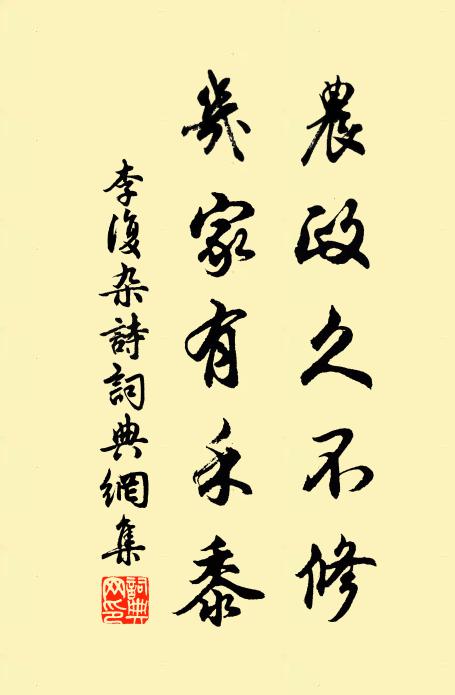 農政久不修
幾家有禾黍
李復杂詩詞典網集
詞典網印